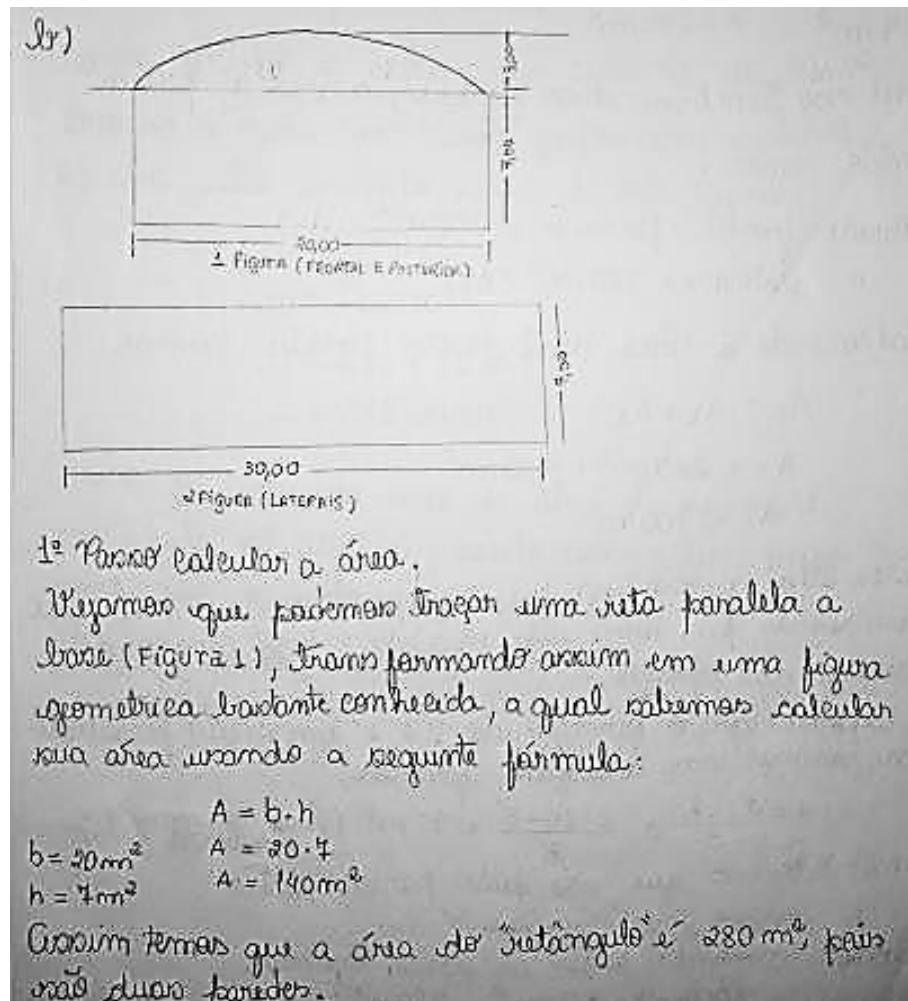 b)
3,00
7,00
20,00
1 FIGURA (FRONTAL E POSTERIOR)
7,00
30,00
2 FIGURA (LATERAIS)
1º Passo calcular a área.
Vejamos que podemos traçar uma reta paralela a
base (FIGURA 1), transformando assim em uma figura
geometrica bastante conhecida, a qual sabemos calcular
sua área usando a seguinte fórmula:
A = b.h
b = 20m² A = 20.7
h = 7m² A = 140m²
Assim temos que a área do "retângulo" é 280 m², pois
são duas paredes.